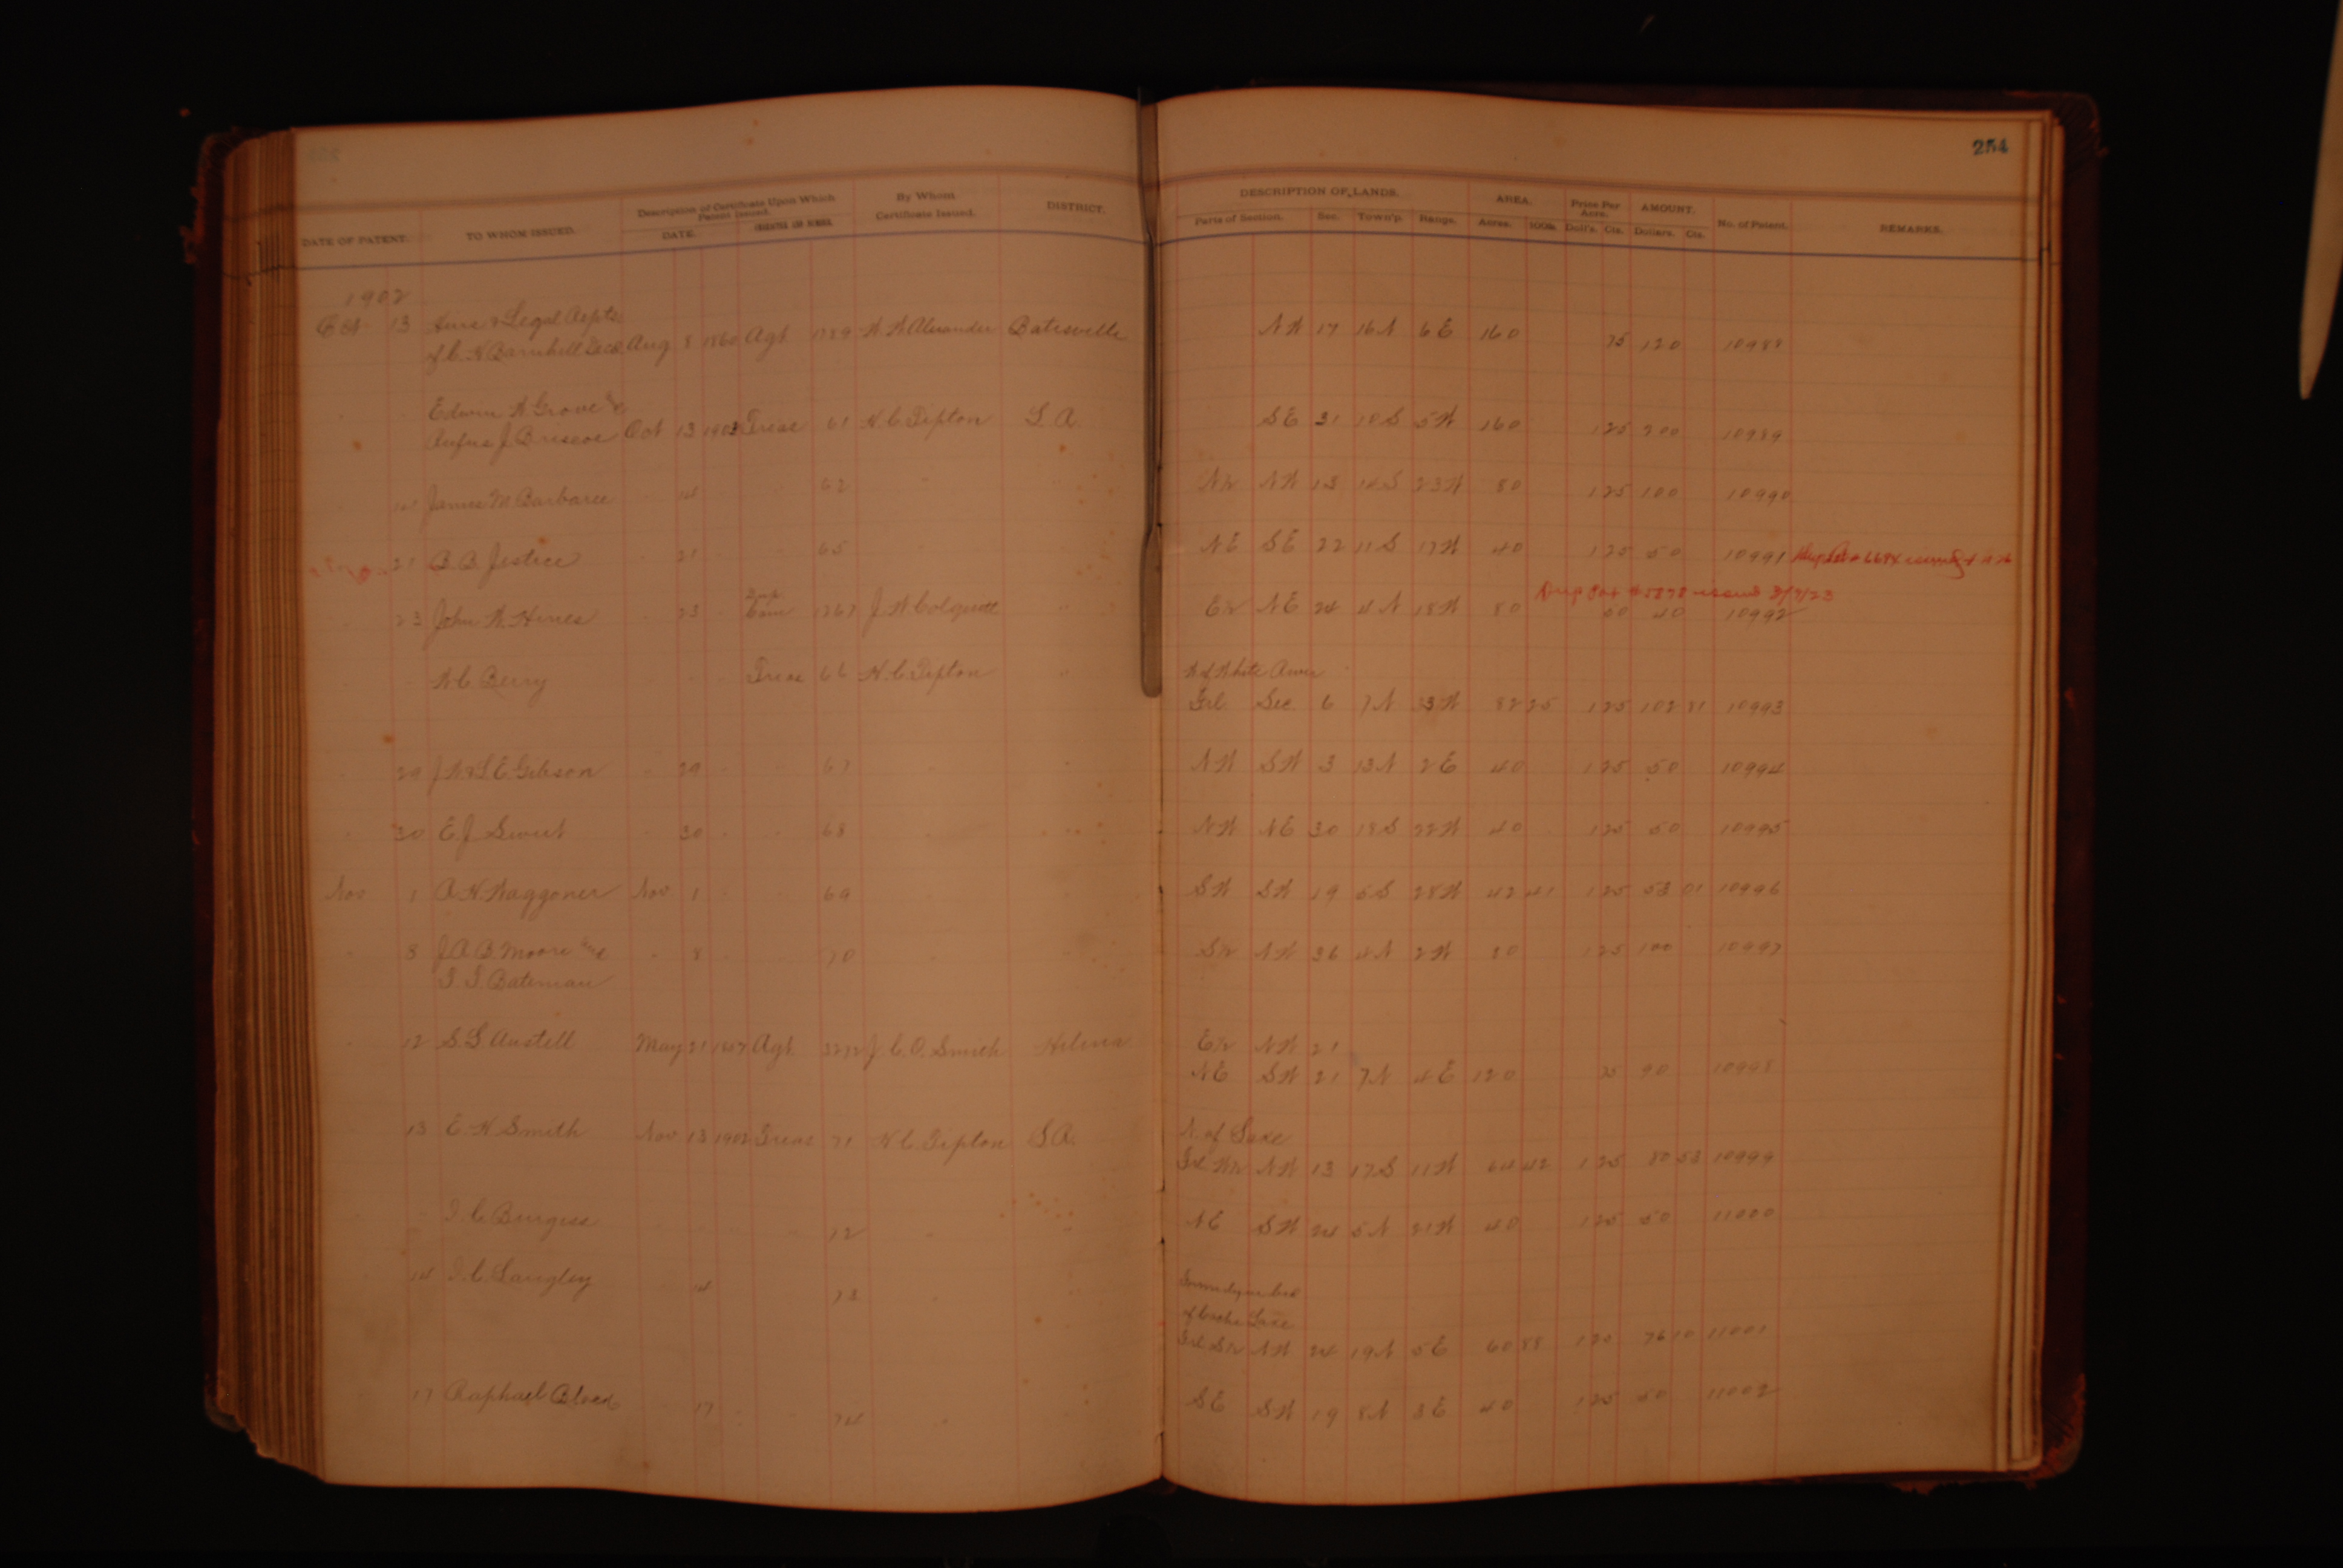 254
DATE OF PATENT. TO WHOM ISSUED. Description of Certificate Upon Which Patent Issued. DATE. CHARACTER AND NUMBER. By Whom Certificate Issued. DISTRICT. DESCRIPTION OF LANDS. Parts of Section. Sec. Town'p. Range. AREA. Acres. 100ths Price Per Acre. Doll's. Cts. AMOUNT. Dollars. Cts. No. of Patent. REMARKS.
1902
Oct 13 Heirs & Legal Repts.
of C. H. Barnhill Aug 8 1860 Agt 1789 W. W. Alexander Batesville NW 17 16N 6E 160 75 120 10988
Edwin W. Grove &
Rufus J. Briscoe Oct 13 1902 Treas 61 H. C. Tipton L A SE 31 18S 5W 160 1 25 200 10989
" 14 James M Barbaree " 14 " " 62 " " N½ NW 13 18S 23W 80 1 25 100 10990
21 B. B. Jestice " 21 " " 65 " " NE SE 22 11S 17W 40 1 25 50 10991
Dup Pat # 5898 issued 3/9/23
" 23 John W. Hines " 23 " Dup Com 1267 J. W. Colquitt " E½ NE 24 4N 18W 80 50 40 10992
" W C Berry " " " Treas 66 H. C. Tipton " W of White River
Frl Sec 6 7N 3W 82 25 1 25 102 81 10993
" 29 J. W & L E Gibson " 29 " " 67 " " NW SW 3 13N 2E 40 1 25 50 10994
" 30 E. J. Sweet " 30 " " 68 " " NW NE 30 18S 22W 40 1 25 50 10995
Nov 1 A. H. Waggoner Nov 1 " " 69 " " SW SW 19 5S 28W 42 41 1 25 53 01 10996
" 8 J. A. B. Moore and " 8 " " 70 " " S½ NW 36 4N 2W 80 1 25 100 10997
T. T. Bateman
" 12 S. L. Austell May 21 1857 Agt 3272 J. C. O. Smith Helena E½ NW 21
NE SW 21 7N 4E 120 75 90 10998
13 E. W. Smith Nov 13 1902 Treas 71 H. C. Tipton L A. N. of Lake
Frl W½ NW 13 17S 11W 64 42 1 25 80 53 10999
J. C. Burgess " " 72 " " NE SW 24 5N 21W 40 1 25 50 11000
14 J. C. Langley 14 73 " "
of Lake
Frl S½ NW 24 19N 5E 60 88 1 25 76 10 11001
17 Raphael Block 17 " " 74 " " SE SW 19 8N 3E 40 1 25 50 11002